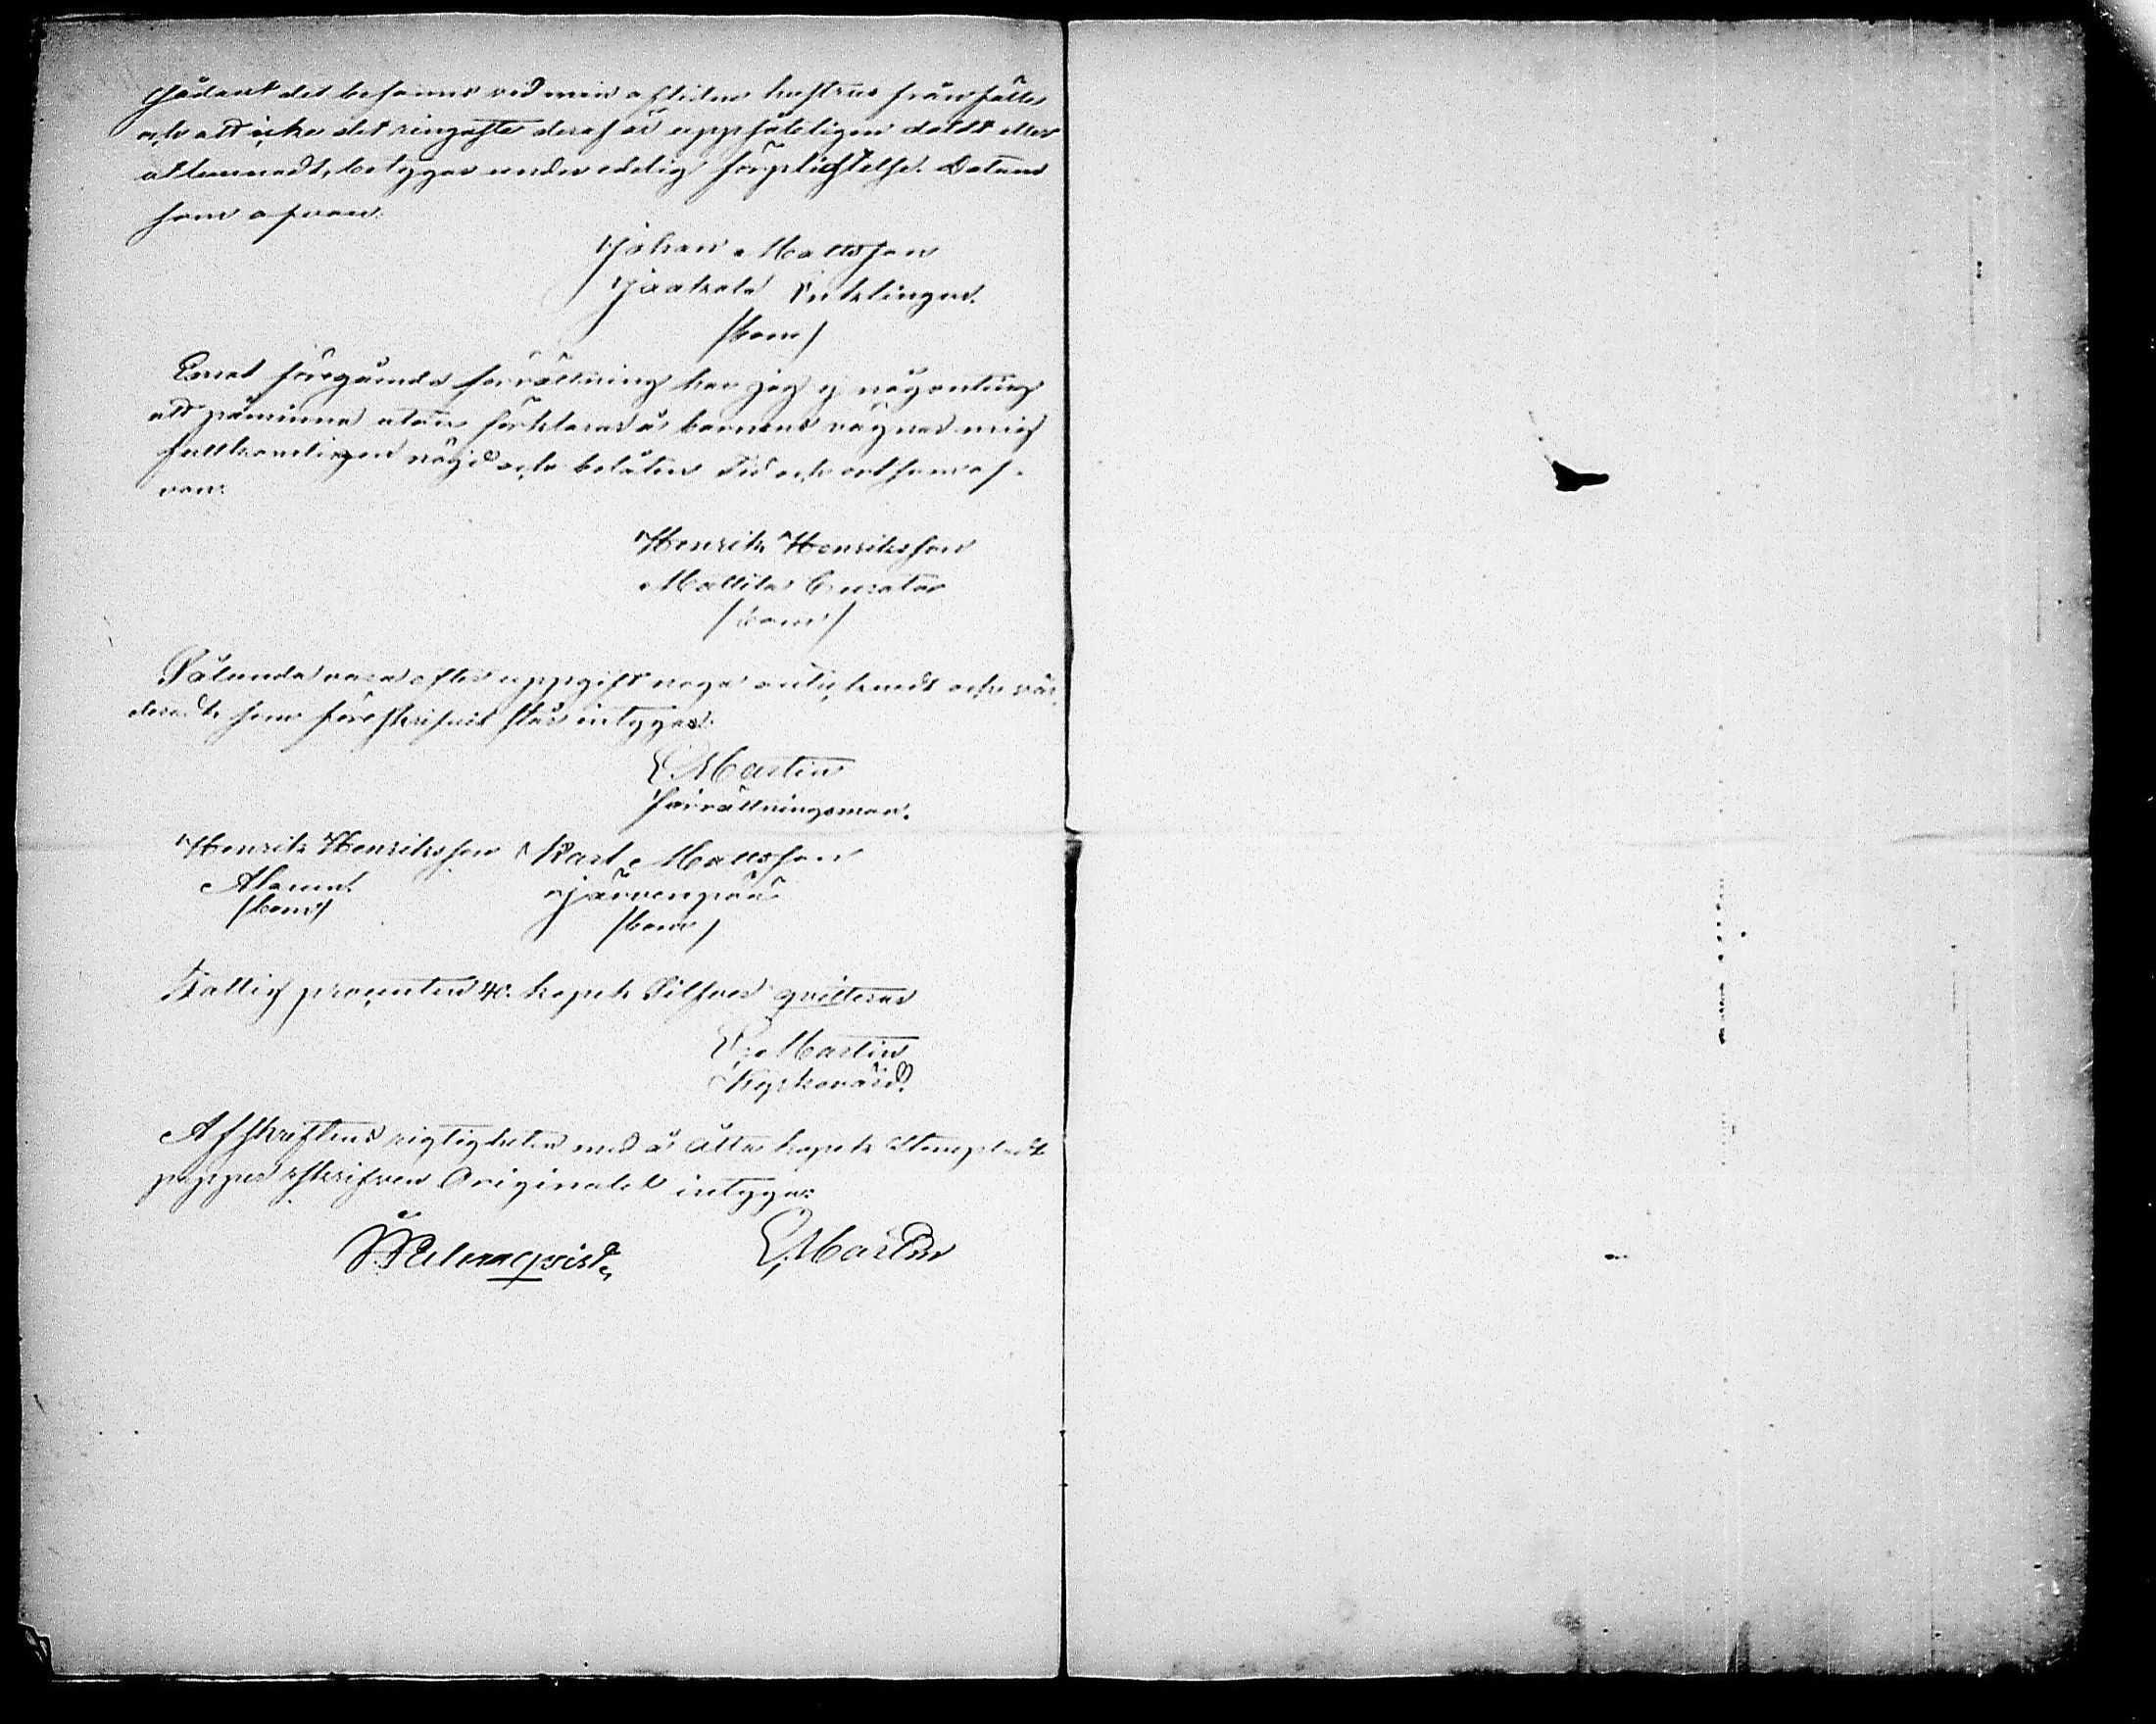 sådant det befanns vid min aflidna hustrus frånfälle
och att icke det ringaste deraf är uppsåteligen doldt eller
undt, betygar under edelig förpligtelse. Datum
som ofvan.
Johan Mattsson
Jaakola Enklingen.
/bom/
Emot föregående förrättning har jag ej någonting
att påminna utan förklarar å barnens vägnar mig
fullkomligen nöjd och belåten Tid och ort som of-
van.
Henrik Henriksson
Mattila Curator
/bom/
Sålunda vara efter uppgift noga antecknadt och vär-
deradt som föreskrifvit står intygar.
E. Martin
förrättningsman.
Henrik Henriksson Karl Mattsson
Järvenpää
/bom/ /bom/
Fattig procenten 40. kopek Silfver qvitteras
E. Martin
Kyrkovärd.
Afskriftens rigtighet med å åtta kopek Stempladt
papper skrifven Originalet intyga:
E. Martin